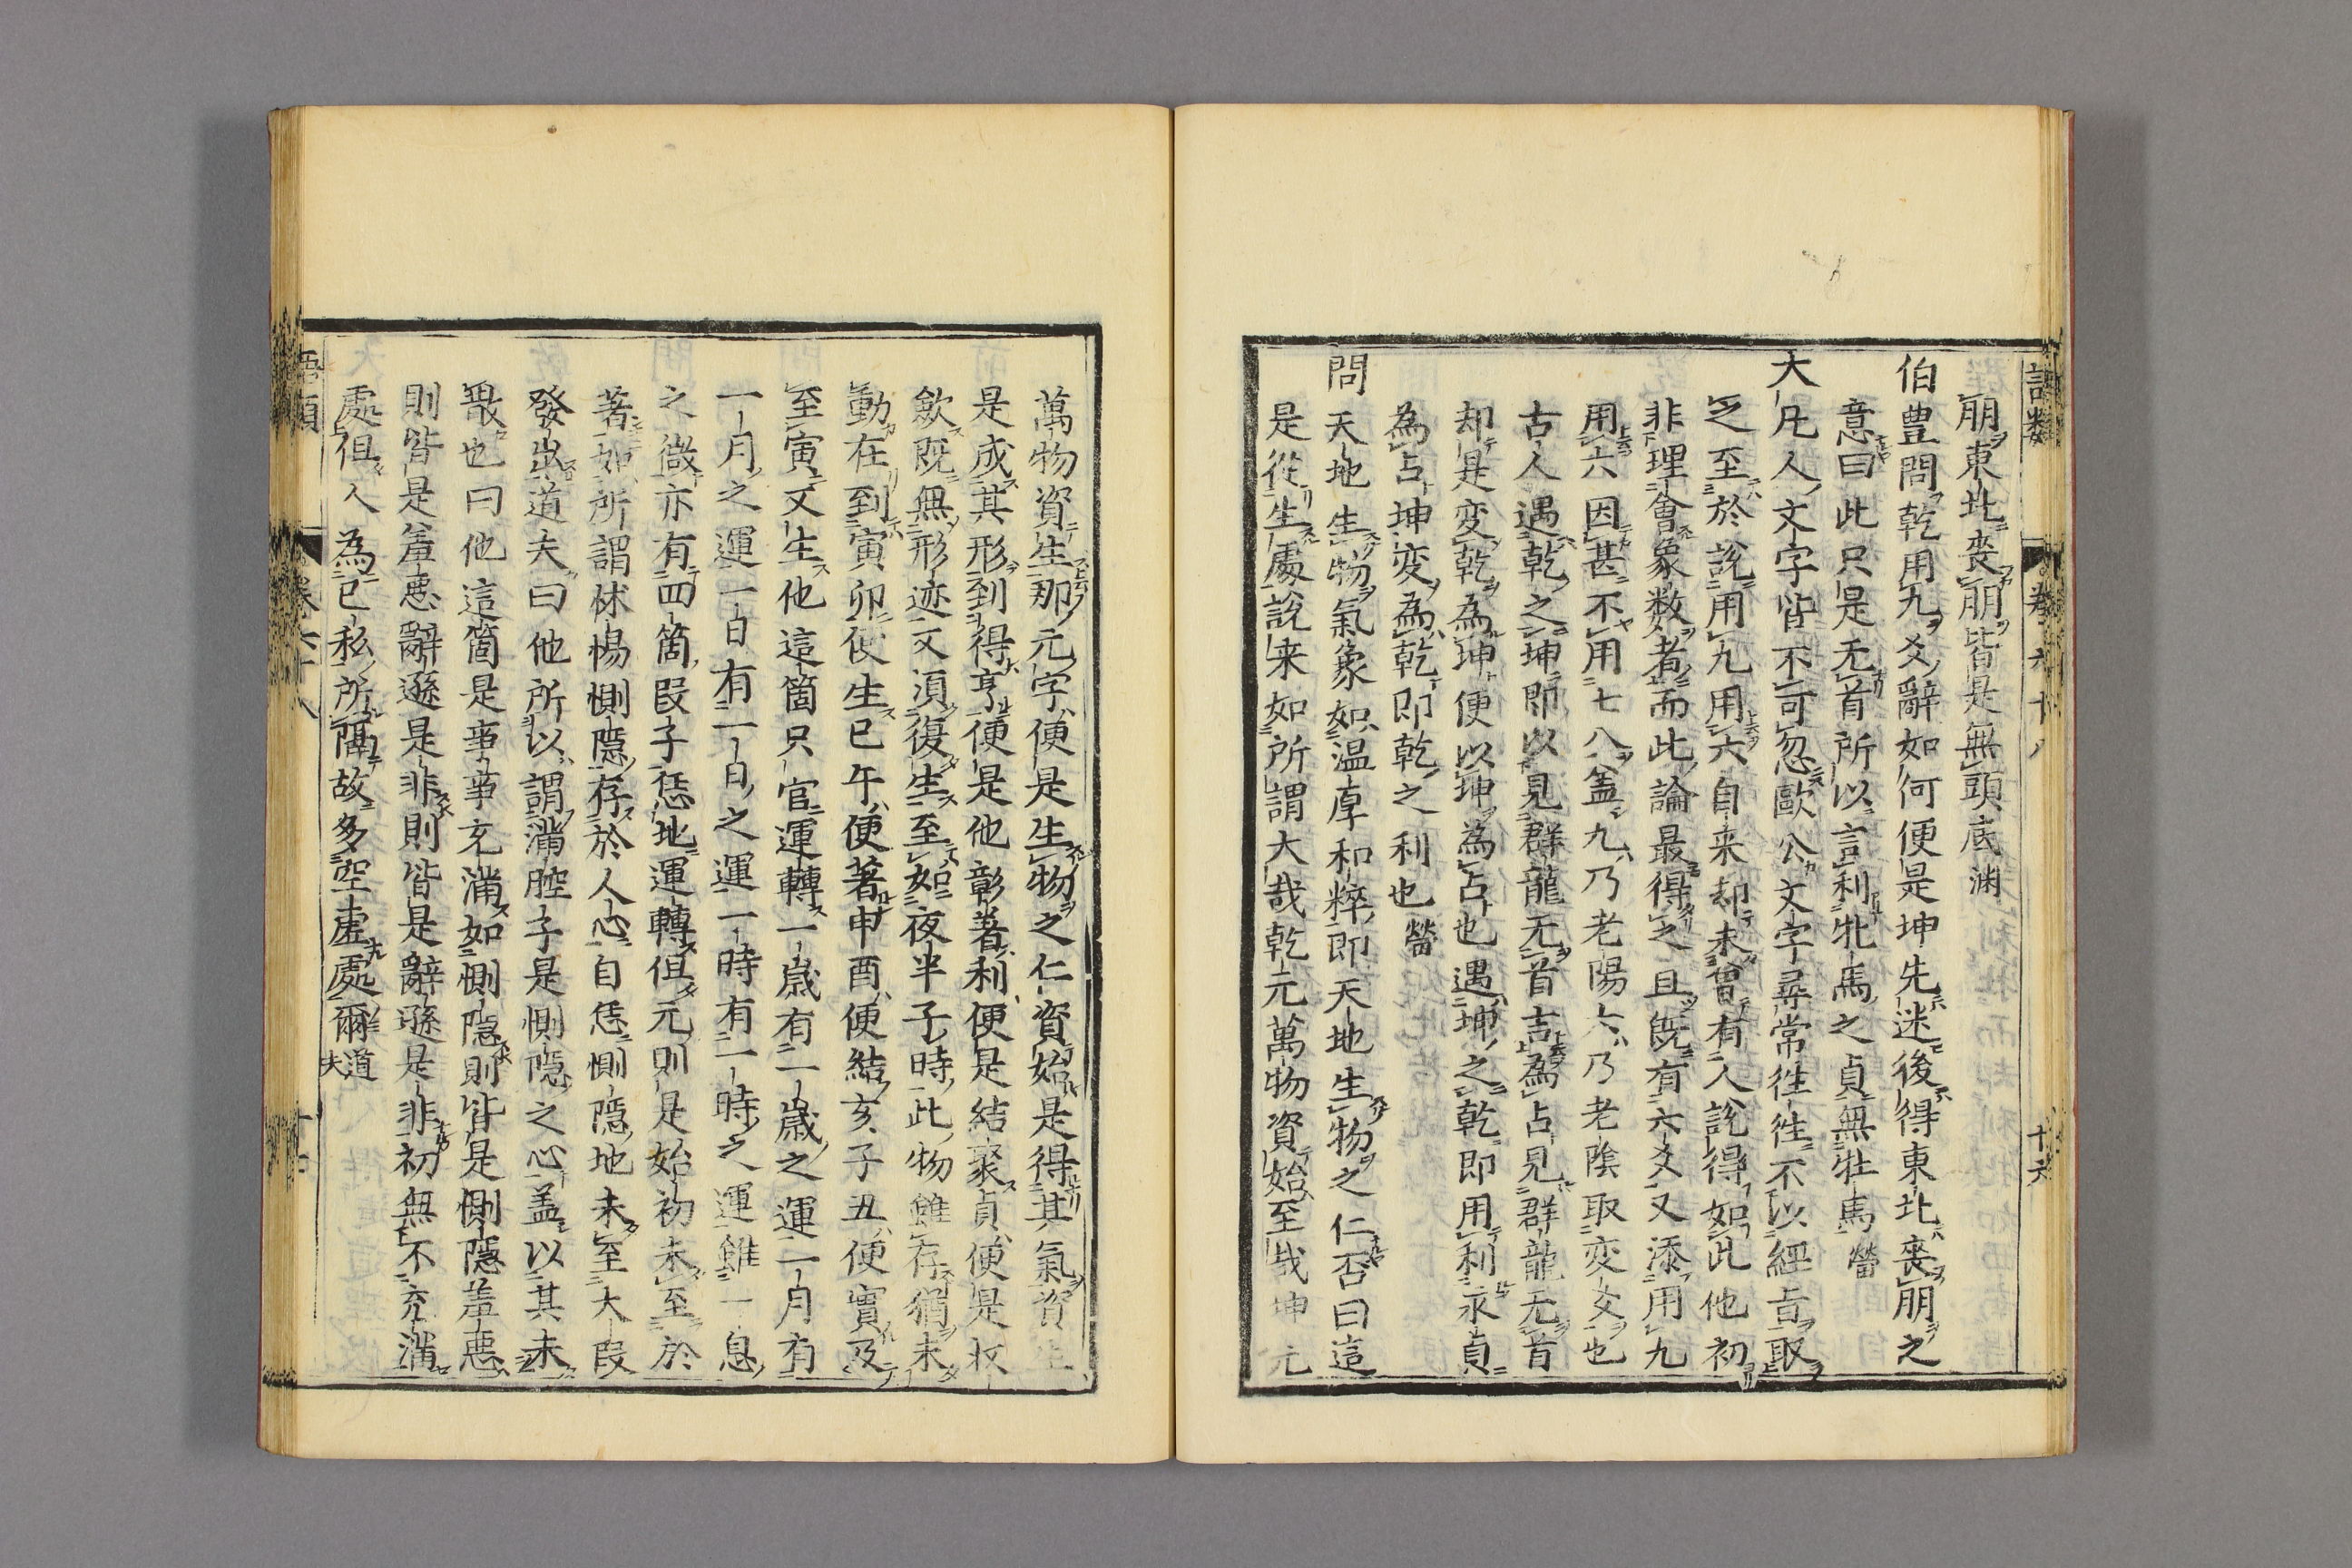 語類 卷六十八 十六
朋東北喪朋皆是無頭底渊
伯豊問乾用九爻辭如何便是坤先迷後得東北喪朋之
意曰此只是无首所以言利牝馬之貞無牡馬㽦
大凡人文字皆不可忽歐公文字尋常徃徃不以經旨取
之至於說用九用六自来却未曾有人說得如此他初
非理會象数者而此論最得之且既有六爻又添用九
用六因甚不用七八盖九乃老陽六乃老陰取変爻也
古人遇乾之坤即以見群龍无首吉為占見群龍无首
却是変乾為坤便以坤為占也遇坤之乾即用利永貞
為占坤変為乾即乾之利也㽦
問天地生物氣象如温厚和粹即天地生物之仁否曰這
是從生處說来如所謂大哉乾元萬物資始至哉坤元
萬物資生那元字便是生物之仁資始是得其氣資生
是成其形到得亨便是他彰著利便是結聚貞便是收
歛既無形迹又須復生至如夜半子時此物雖存猶未
動在到寅卯便生巳午便著申酉便結亥子丑便實及
至寅又生他這箇只官運轉一歲有一歲之運一月有
一月之運一日有一日之運一時有一時之運雖一息
之微亦有四箇段子恁地運轉但元則是始初未至於
著如所謂怵惕惻隱存於人心自恁惻隱地未至大段
發出道夫曰他所以謂滿腔子是惻隱之心盖以其未
散也曰他這箇是事事充滿如惻隱則皆是惻隱羞惡
則皆是羞惡辭遜是非則皆是辭遜是非初無不充滿
處但人為己私所隔故多空虛處爾道夫
語類 卷六十八